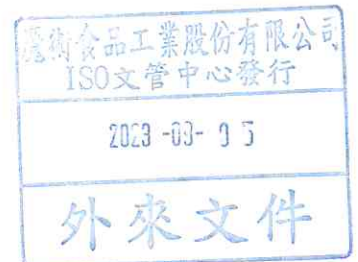 食品工業股份有限公司
ISO文管中心發行
2023-03-
外來文件